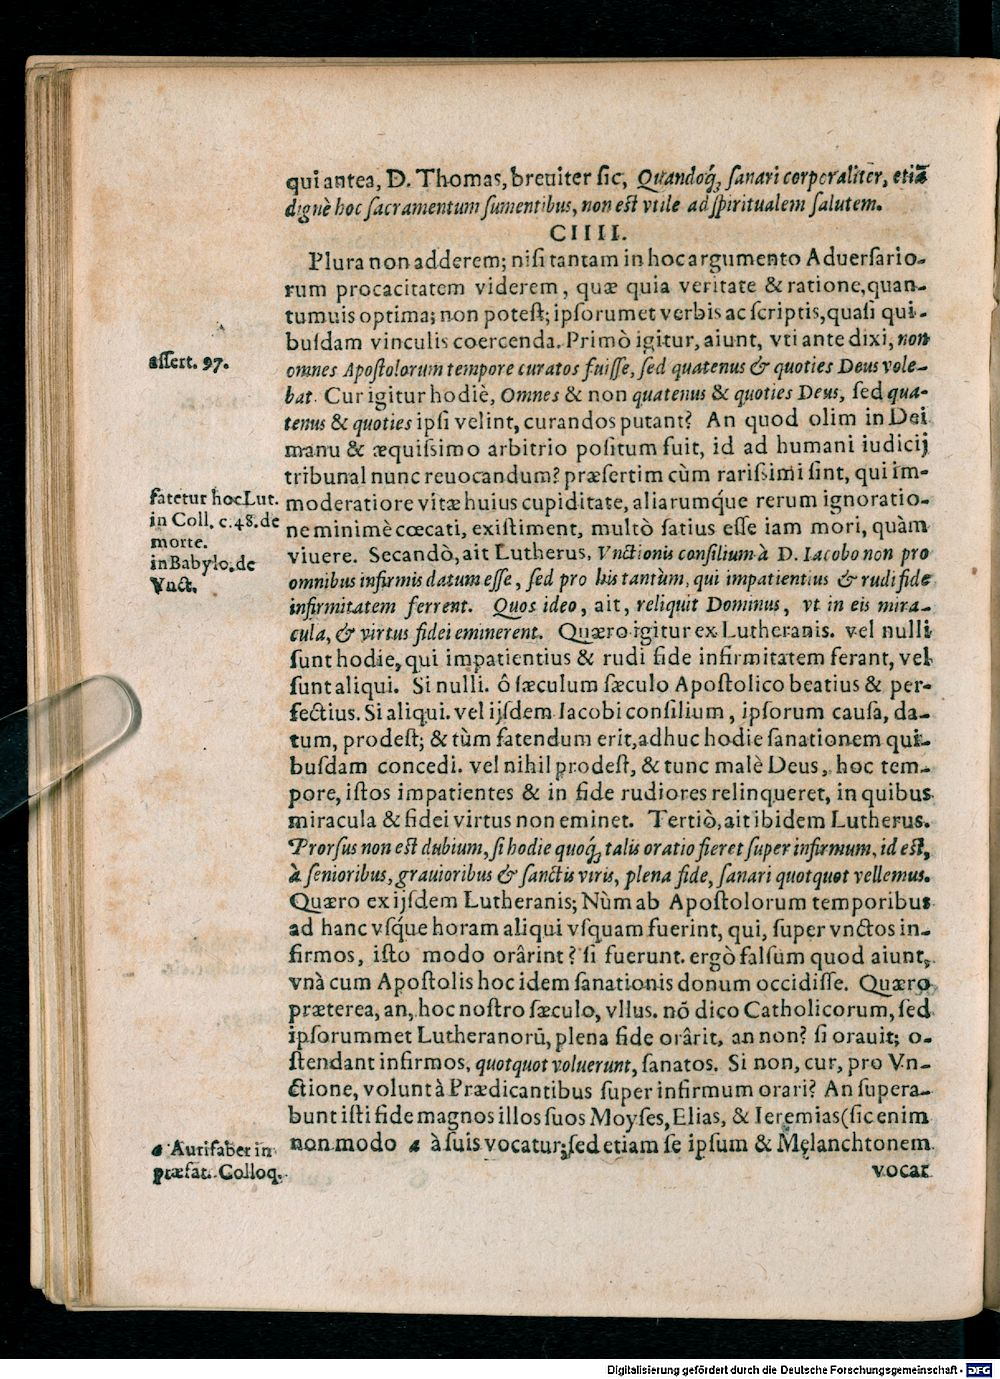 qui antea, D. Thomas, breuiter sic, Quandoq́; sanari corporaliter, etiã
dignè hoc sacramentum sumentibus, non est vtile ad spiritualem salutem.
CIIII.
Plura non adderem; nisi tantam in hoc argumento Aduersario-
rum procacitatem viderem, quæ quia veritate & ratione, quan-
tumuis optima; non potest; ipsorumet verbis ac scriptis, quasi qui-
busdam vinculis coercenda. Primò igitur, aiunt, vti ante dixi, non
assert. 97.
omnes Apostolorum tempore curatos fuisse, sed quatenus & quoties Deus vole-
bat. Cur igitur hodiè, Omnes & non quatenus & quoties Deus, sed qua-
tenus & quoties ipsi velint, curandos putant? An quod olim in Dei
manu & æquissimo arbitrio positum fuit, id ad humani iudicij
tribunal nunc reuocandum? præsertim cùm rarissimi sint, qui im-
fatetur hoc Lut.
in Coll. c. 48. de
morte.
in Babylo. de
Vnct.
moderatiore vitæ huius cupiditate, aliarumq́ue rerum ignoratio-
ne minimè cœcati, existiment, multò satius esse iam mori, quàm
viuere. Secundò, ait Lutherus, Vnctionis consilium à D. Iacobo non pro
omnibus infirmis datum esse, sed pro his tantùm, qui impatientius & rudi fide
infirmitatem ferrent. Quos ideo, ait, reliquit Dominus, vt in eis mira-
cula, & virtus fidei eminerent. Quæro igitur ex Lutheranis. vel nulli
sunt hodie, qui impatientius & rudi fide infirmitatem ferant, vel
sunt aliqui. Si nulli. ô sæculum sæculo Apostolico beatius & per-
fectius. Si aliqui. vel ijsdem Iacobi consilium, ipsorum causa, da-
tum, prodest; & tùm fatendum erit, adhuc hodie sanationem qui-
busdam concedi. vel nihil prodest, & tunc malè Deus, hoc tem-
pore, istos impatientes & in fide rudiores relinqueret, in quibus
miracula & fidei virtus non eminet. Tertiò, ait ibidem Lutherus.
Prorsus non est dubium, si hodie quoq́; talis oratio fieret super infirmum, id est,
à senioribus, grauioribus & sanctis viris, plena fide, sanari quotquot vellemus.
Quæro ex ijsdem Lutheranis; Nùm ab Apostolorum temporibus
ad hanc vsq́ue horam aliqui vsquam fuerint, qui, super vnctos in-
firmos, isto modo orârint? si fuerunt. ergò falsum quod aiunt,
vnà cum Apostolis hoc idem sanationis donum occidisse. Quæro
præterea, an, hoc nostro sæculo, vllus. nõ dico Catholicorum, sed
ipsorummet Lutheranorũ, plena fide orârit, an non? si orauit; o-
stendant infirmos, quotquot voluerunt, sanatos. Si non, cur, pro Vn-
ctione, volunt à Prædicantibus super infirmum orari? An supera-
bunt isti fide magnos illos suos Moyses, Elias, & Ieremias (sic enim
a Aurifaber in
præfat. Colloq.
non modo a à suis vocatur; sed etiam se ipsum & Melanchtonem
vocat
Digitalisierung gefördert durch die Deutsche Forschungsgemeinschaft - DFG